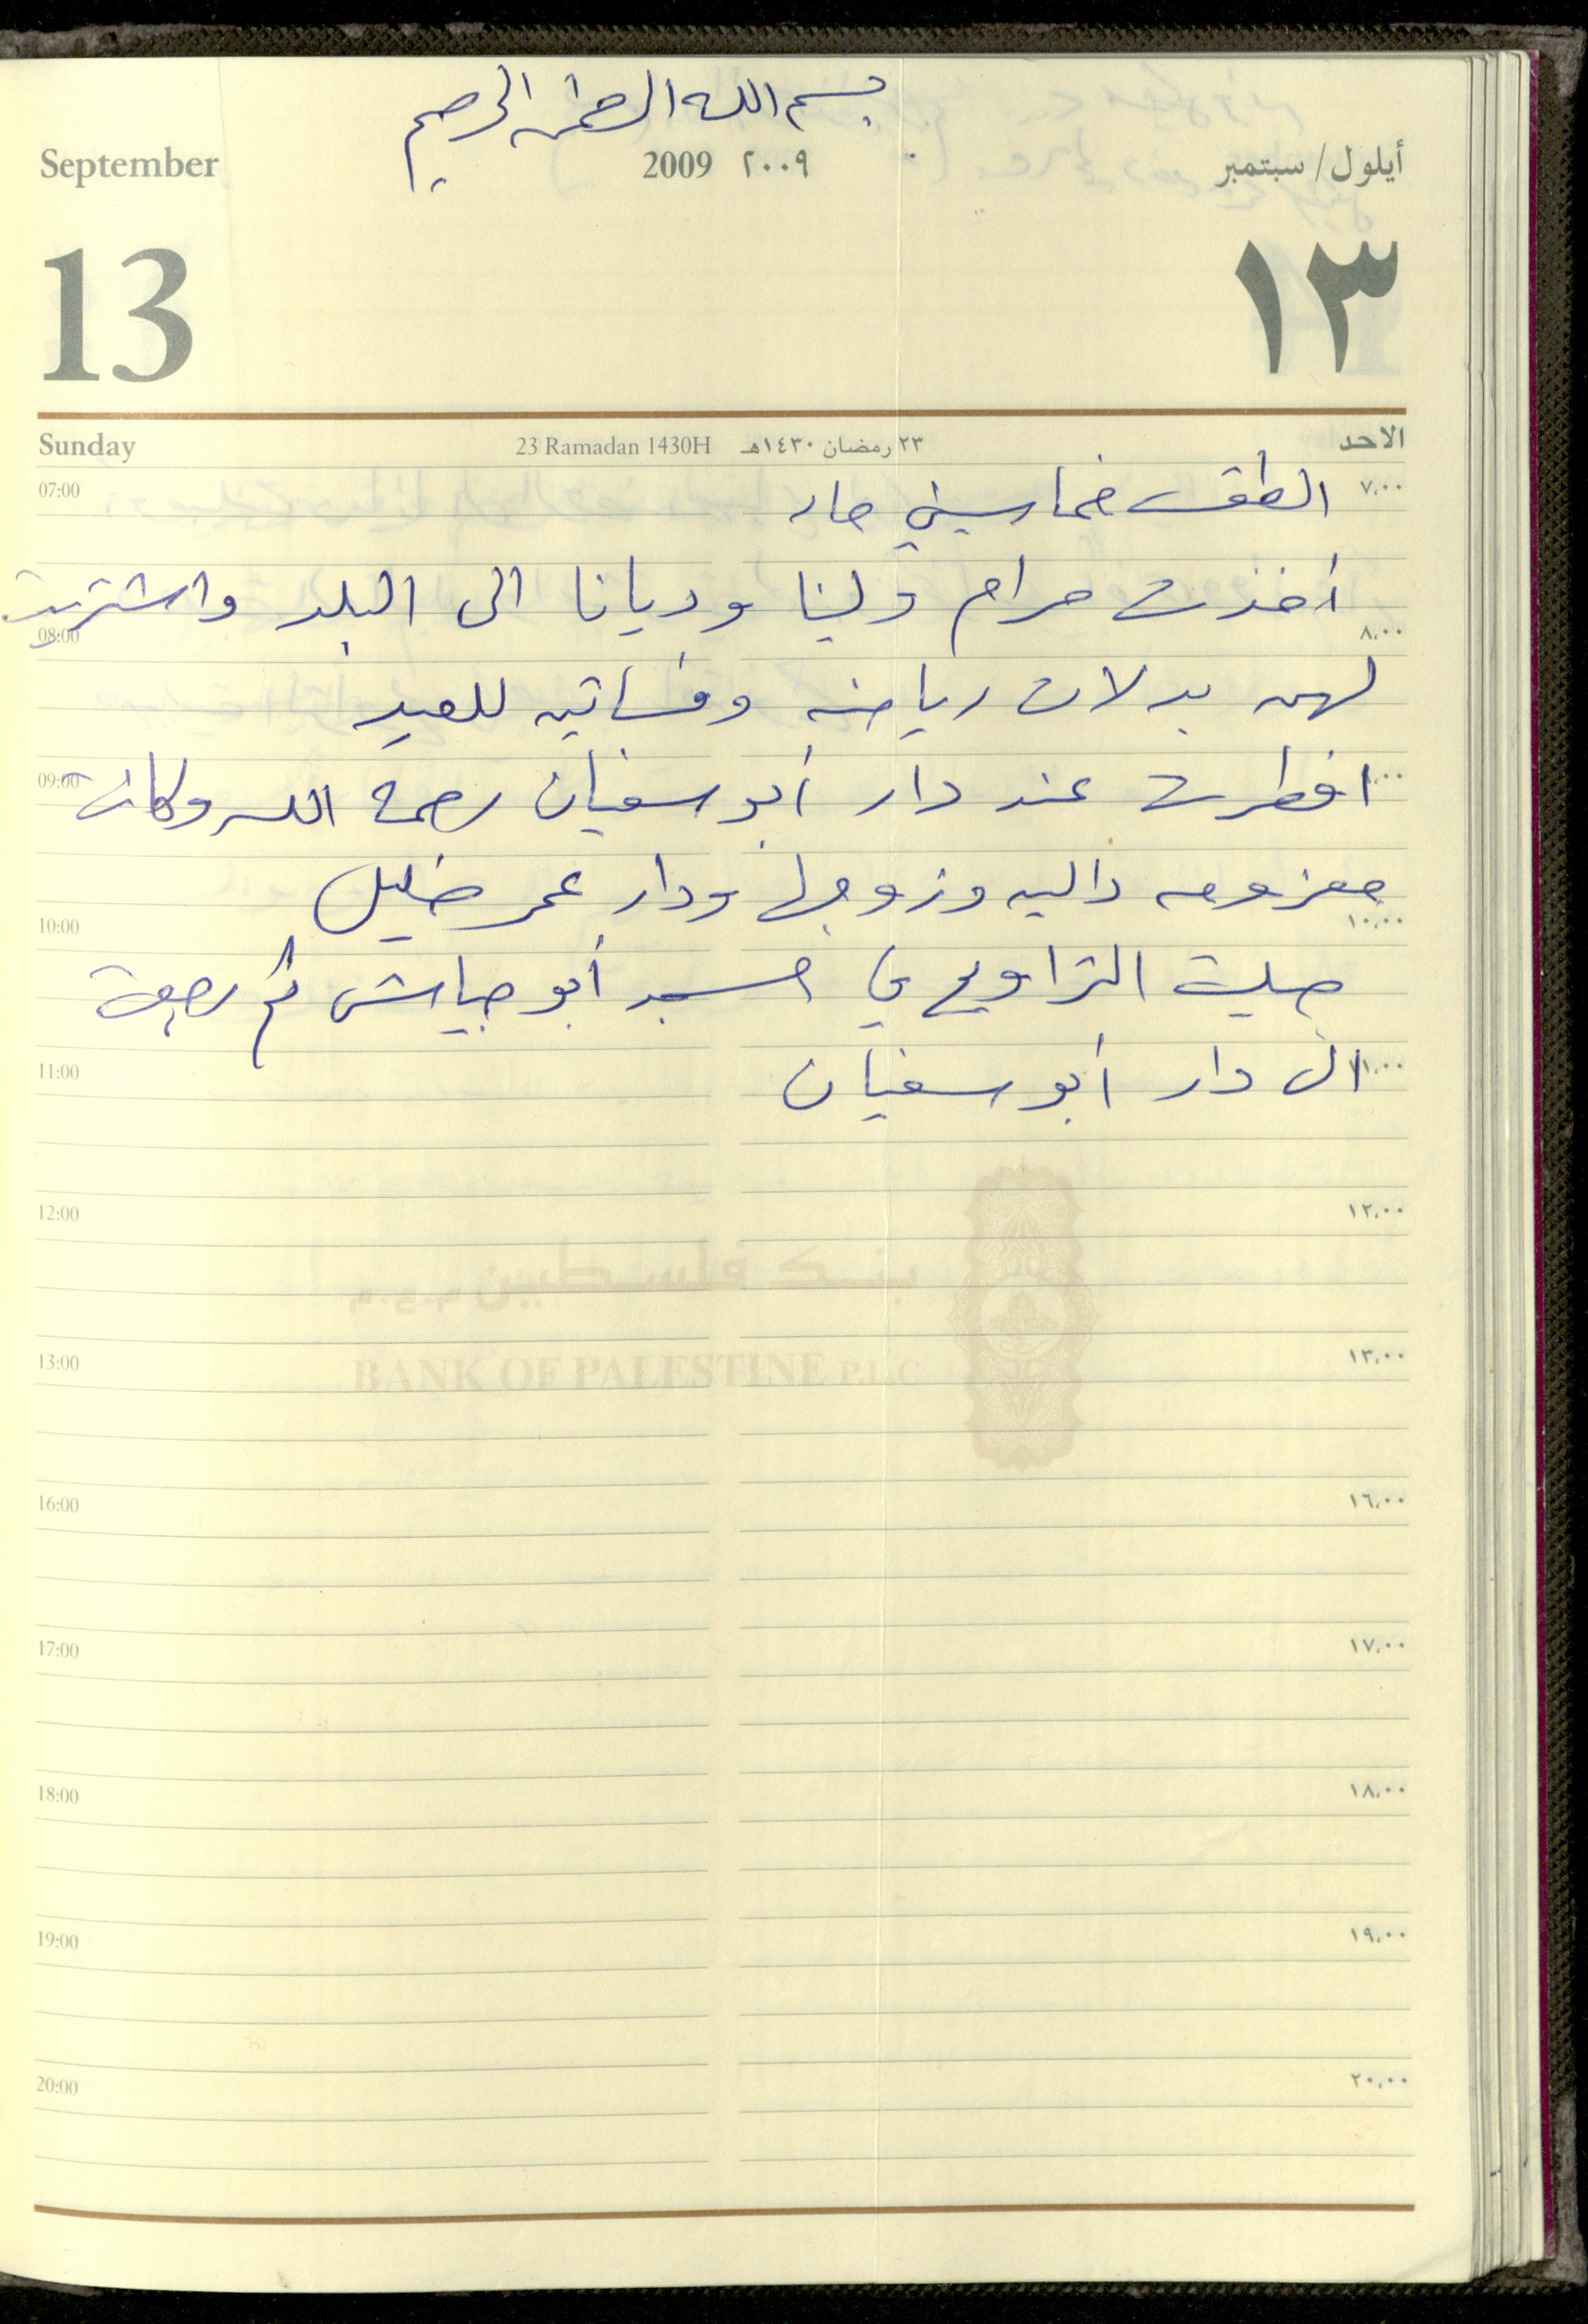 بسم الله الرحمن الرحيم
September 2009 ٢٠٠٩ أيلول/سبتمبر
13 ١٣
Sunday 23 Ramadan 1430H ٢٣ رمضان ١٤٣٠هـ الاحد
07:00 الطقس خماسيني حار ٧،٠٠
أخذت مرام ولينا وديانا الى البلد واشتريت
08:00 ٨،٠٠
لهن بدلات رياضه وفساتين للعيد
09:00 افطرت عند دار أبو سفيان رحمه الله وكانت
معزومه داليه وزوجها ودار عمر خليل
10:00 ١٠،٠٠
صليت التراويح في مسجد أبو جياش ثم رجعت
11:00 الى دار أبو سفيان ١١،٠٠
12:00 ١٢،٠٠
بنك فلسطين م.ع.م
13:00 ١٣،٠٠
BANK OF PALESTINE P.L.C
16:00 ١٦،٠٠
17:00 ١٧،٠٠
18:00 ١٨،٠٠
19:00 ١٩،٠٠
20:00 ٢٠،٠٠